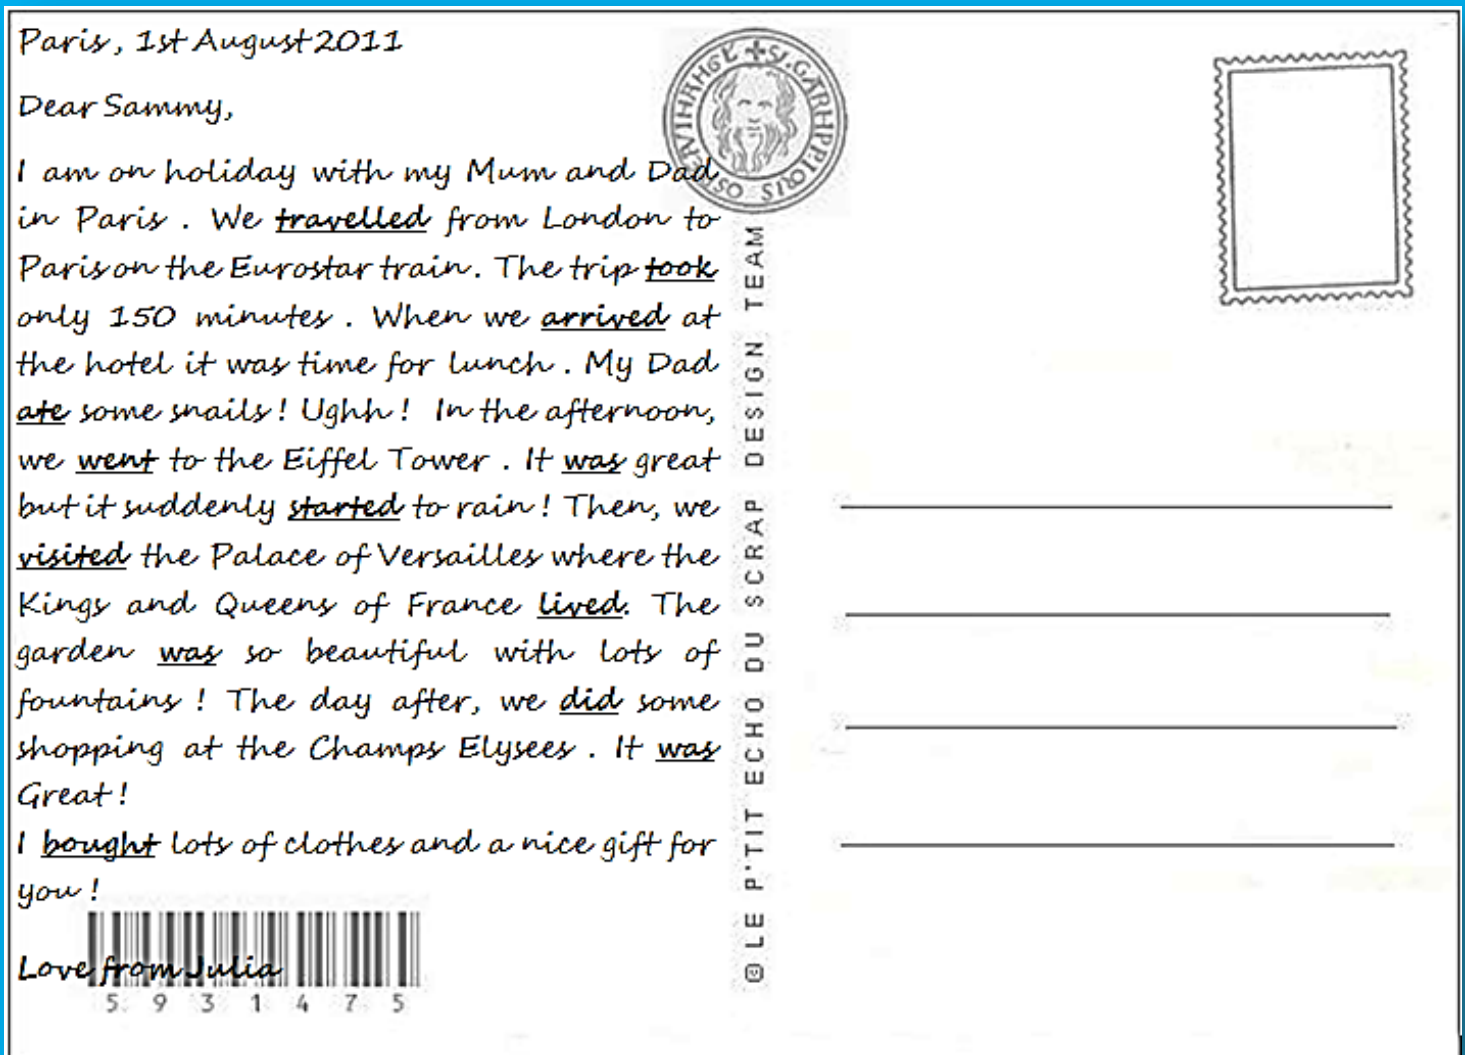 Paris, 1st August 2011
Dear Sammy,
I am on holiday with my Mum and Dad
in Paris . We travelled from London to
Paris on the Eurostar train. The trip took
only 150 minutes . When we arrived at
the hotel it was time for lunch . My Dad
ate some snails ! Ughh ! In the afternoon,
we went to the Eiffel Tower . It was great
but it suddenly started to rain ! Then, we
visited the Palace of Versailles where the
Kings and Queens of France lived. The
garden was so beautiful with lots of
fountains ! The day after, we did some
shopping at the Champs Elysees . It was
Great !
I bought lots of clothes and a nice gift for
you !
Love from Julia
5 9 3 1 4 7 5
© LE P'TIT ECHO DU SCRAP DESIGN TEAM